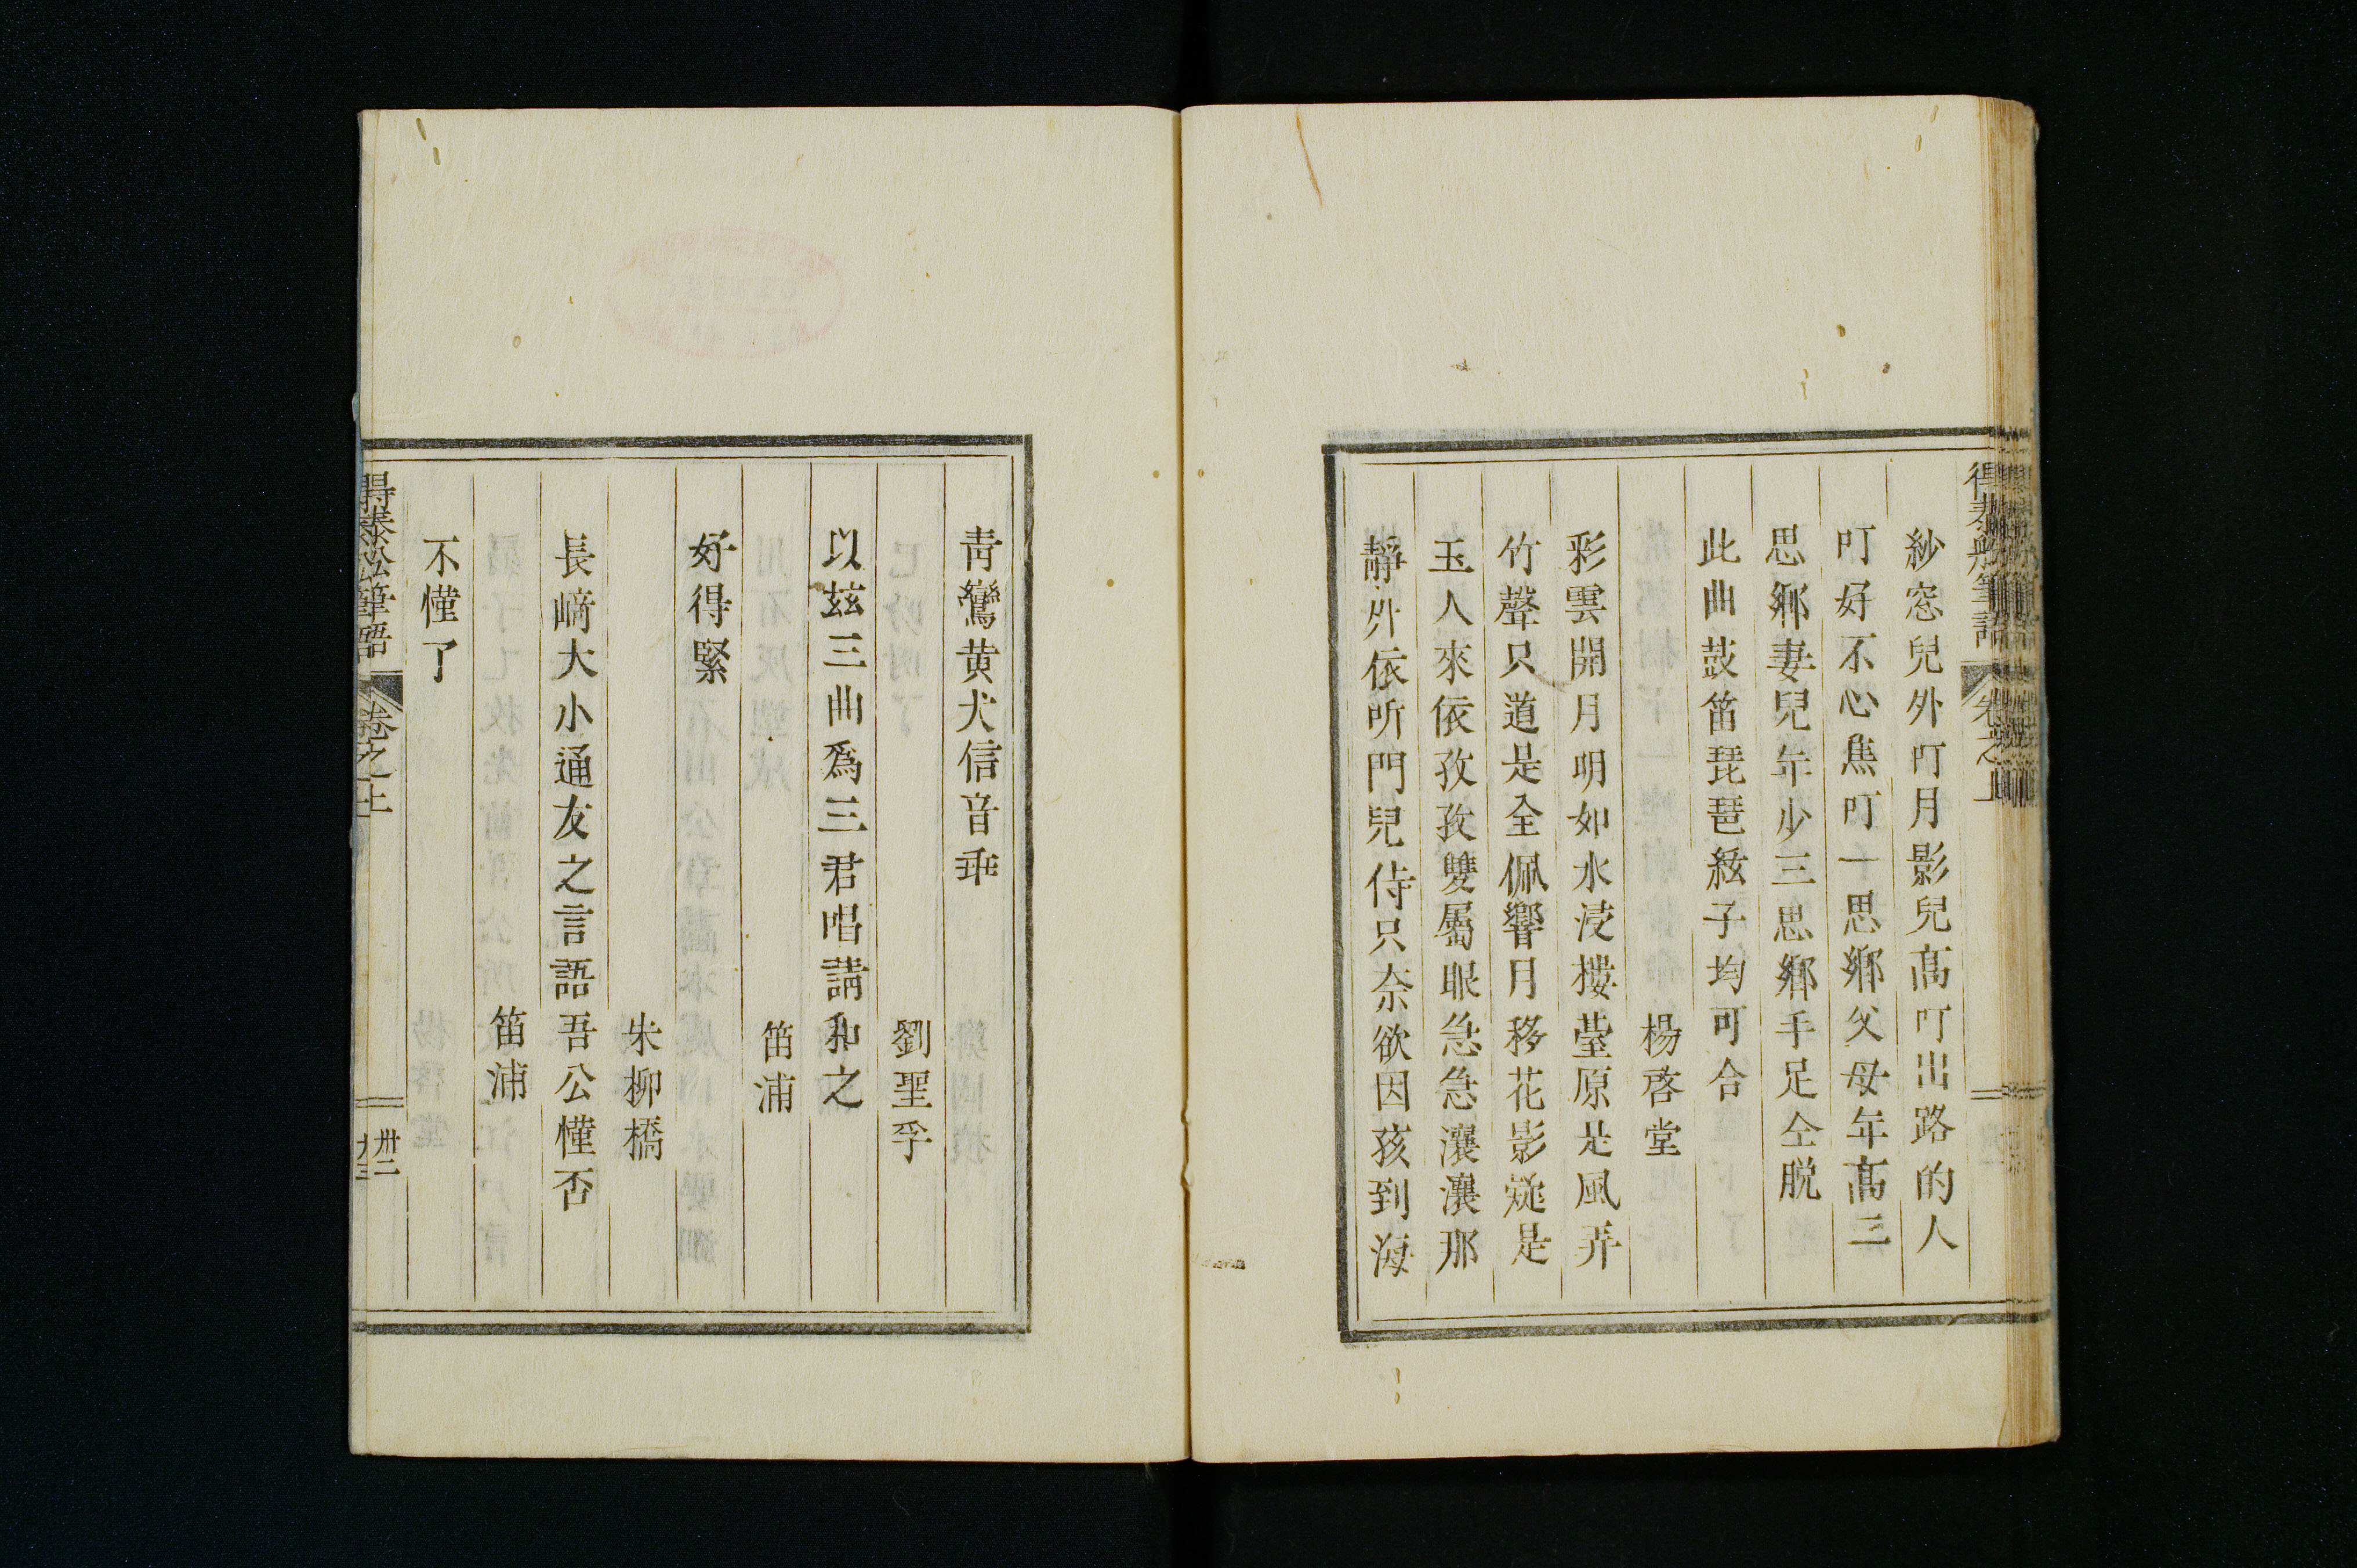 得泰船筆語 卷之上
紗窓兒外叮月影兒髙叮出路的人
叮好不心焦叮一思鄉父母年髙三
思鄉妻兒年少三思鄉手足仝脱
此曲鼓笛琵琶絃子均可合
楊啓堂
彩雲開月明如水浸樓臺原是風弄
竹聲只道是全佩響月移花影疑是
玉人來依孜孜雙屬眼急急瀼瀼那
靜外依所門兒侍只奈欲因孩到海
青鸞黄犬信音乖
劉聖孚
以玆三曲爲三君唱請和之
笛浦
好得緊
朱柳橋
長﨑大小通友之言語吾公懂否
笛浦
不懂了
得泰船筆語 卷之上 卅二